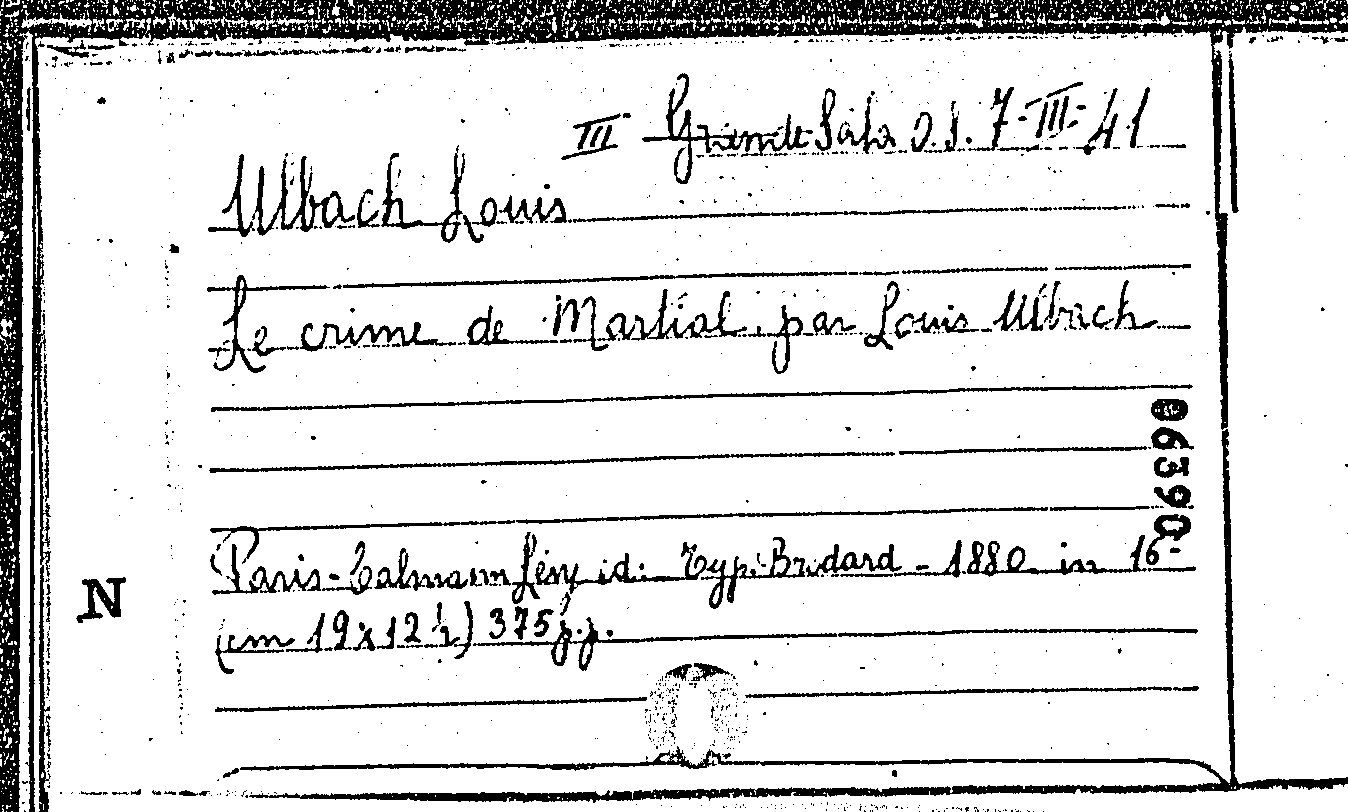 III Grande Sala O.S. 7-III-41
Ulbach Louis
Le crime de Martial, par Louis Ulbach
06390
Paris-Calmann Lévy id: Typ. Brodard - 1880 in 16-
N
(cm 19x12 ½) 375 p.p.